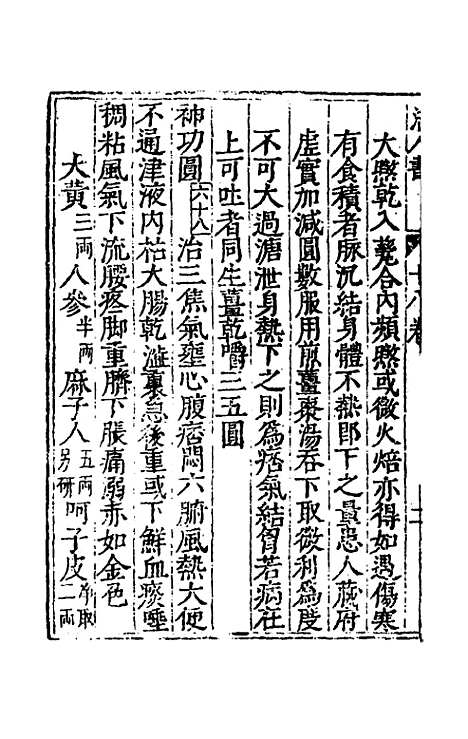 活人書 十八卷 二
大熬乾入甆合內頻熬或微火焙亦得如遇傷寒
有食積者脉沉結身體不熱即下之量患人藏府
虛實加減圓數服用煎薑棗湯吞下取微利爲度
不可大過溏泄身熱下之則爲痞氣結胷若病在
上可吐者同生薑乾嚼三五圓
神功圓 六十八 治三焦氣壅心腹痞悶六腑風熱大便
不通津液內枯大腸乾澁裏急後重或下鮮血痰唾
稠粘風氣下流腰疼脚重臍下脹痛溺赤如金色
大黃 三兩 人參 半兩 麻子人 五兩另研 訶子皮 淨取二兩